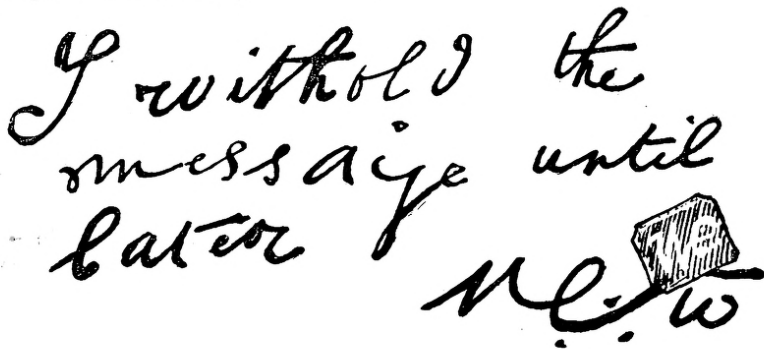 I withold the
message until
later